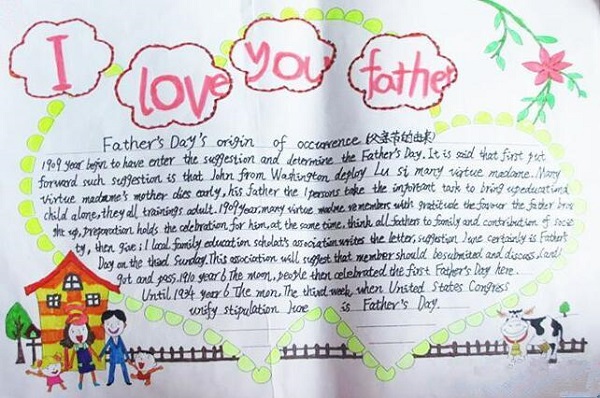 I love you father
Father's Day's origin of occurrence (父亲节的由来)
1909 year begin to have enter the suggestion and determine the Father's Day. It is said that first put
forward such suggestion is that John from Washington deploy Lu si many virtue madame. Many
virtue madame's mother dies early, his father the 1 persons take the important task to bring up educational
child alone, they all trainings adult. 1909 year, many virtue madme remembers with gratitude the favour the father
she up, preparation holds the celebration for him, at the same time, think all fathers to family and contribution of socie
ty, then give; I local family education scholat's association writes the letter, suggestion June certainly is Father's
Day on the third Sunday. This association will suggest that member should be submited and discuss, (and
got and pass. 1910 year 6 The mon, people then celebrated the first Father's Day here.
Until 1934 year 6 The mon. The third week when United States Congress
unify stipulation June is Father's Day.